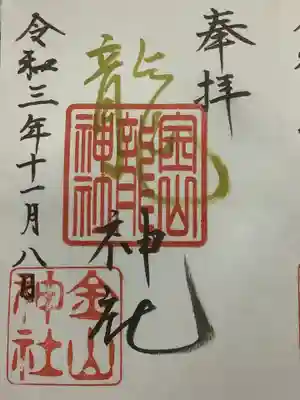 奉拝
龍神社
令和三年十一月八日
金山
神社